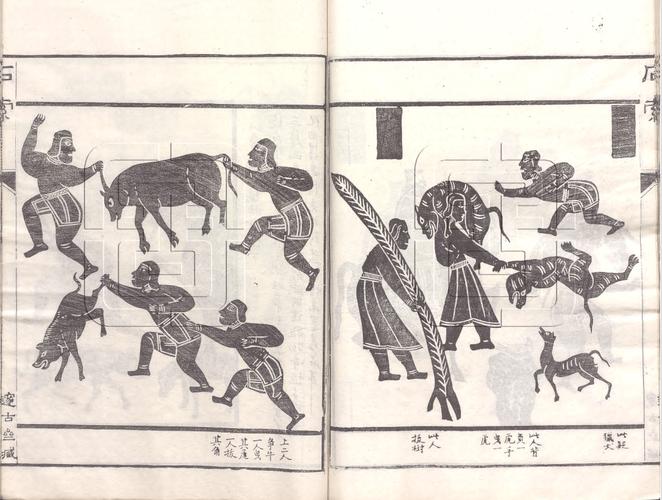 石索
此疑
獵犬
此人背
負一
虎子
曳一
虎
此人
拔樹
上二人
争牛
一人曳
其尾
一人拔
其角
石索
邃古齋藏